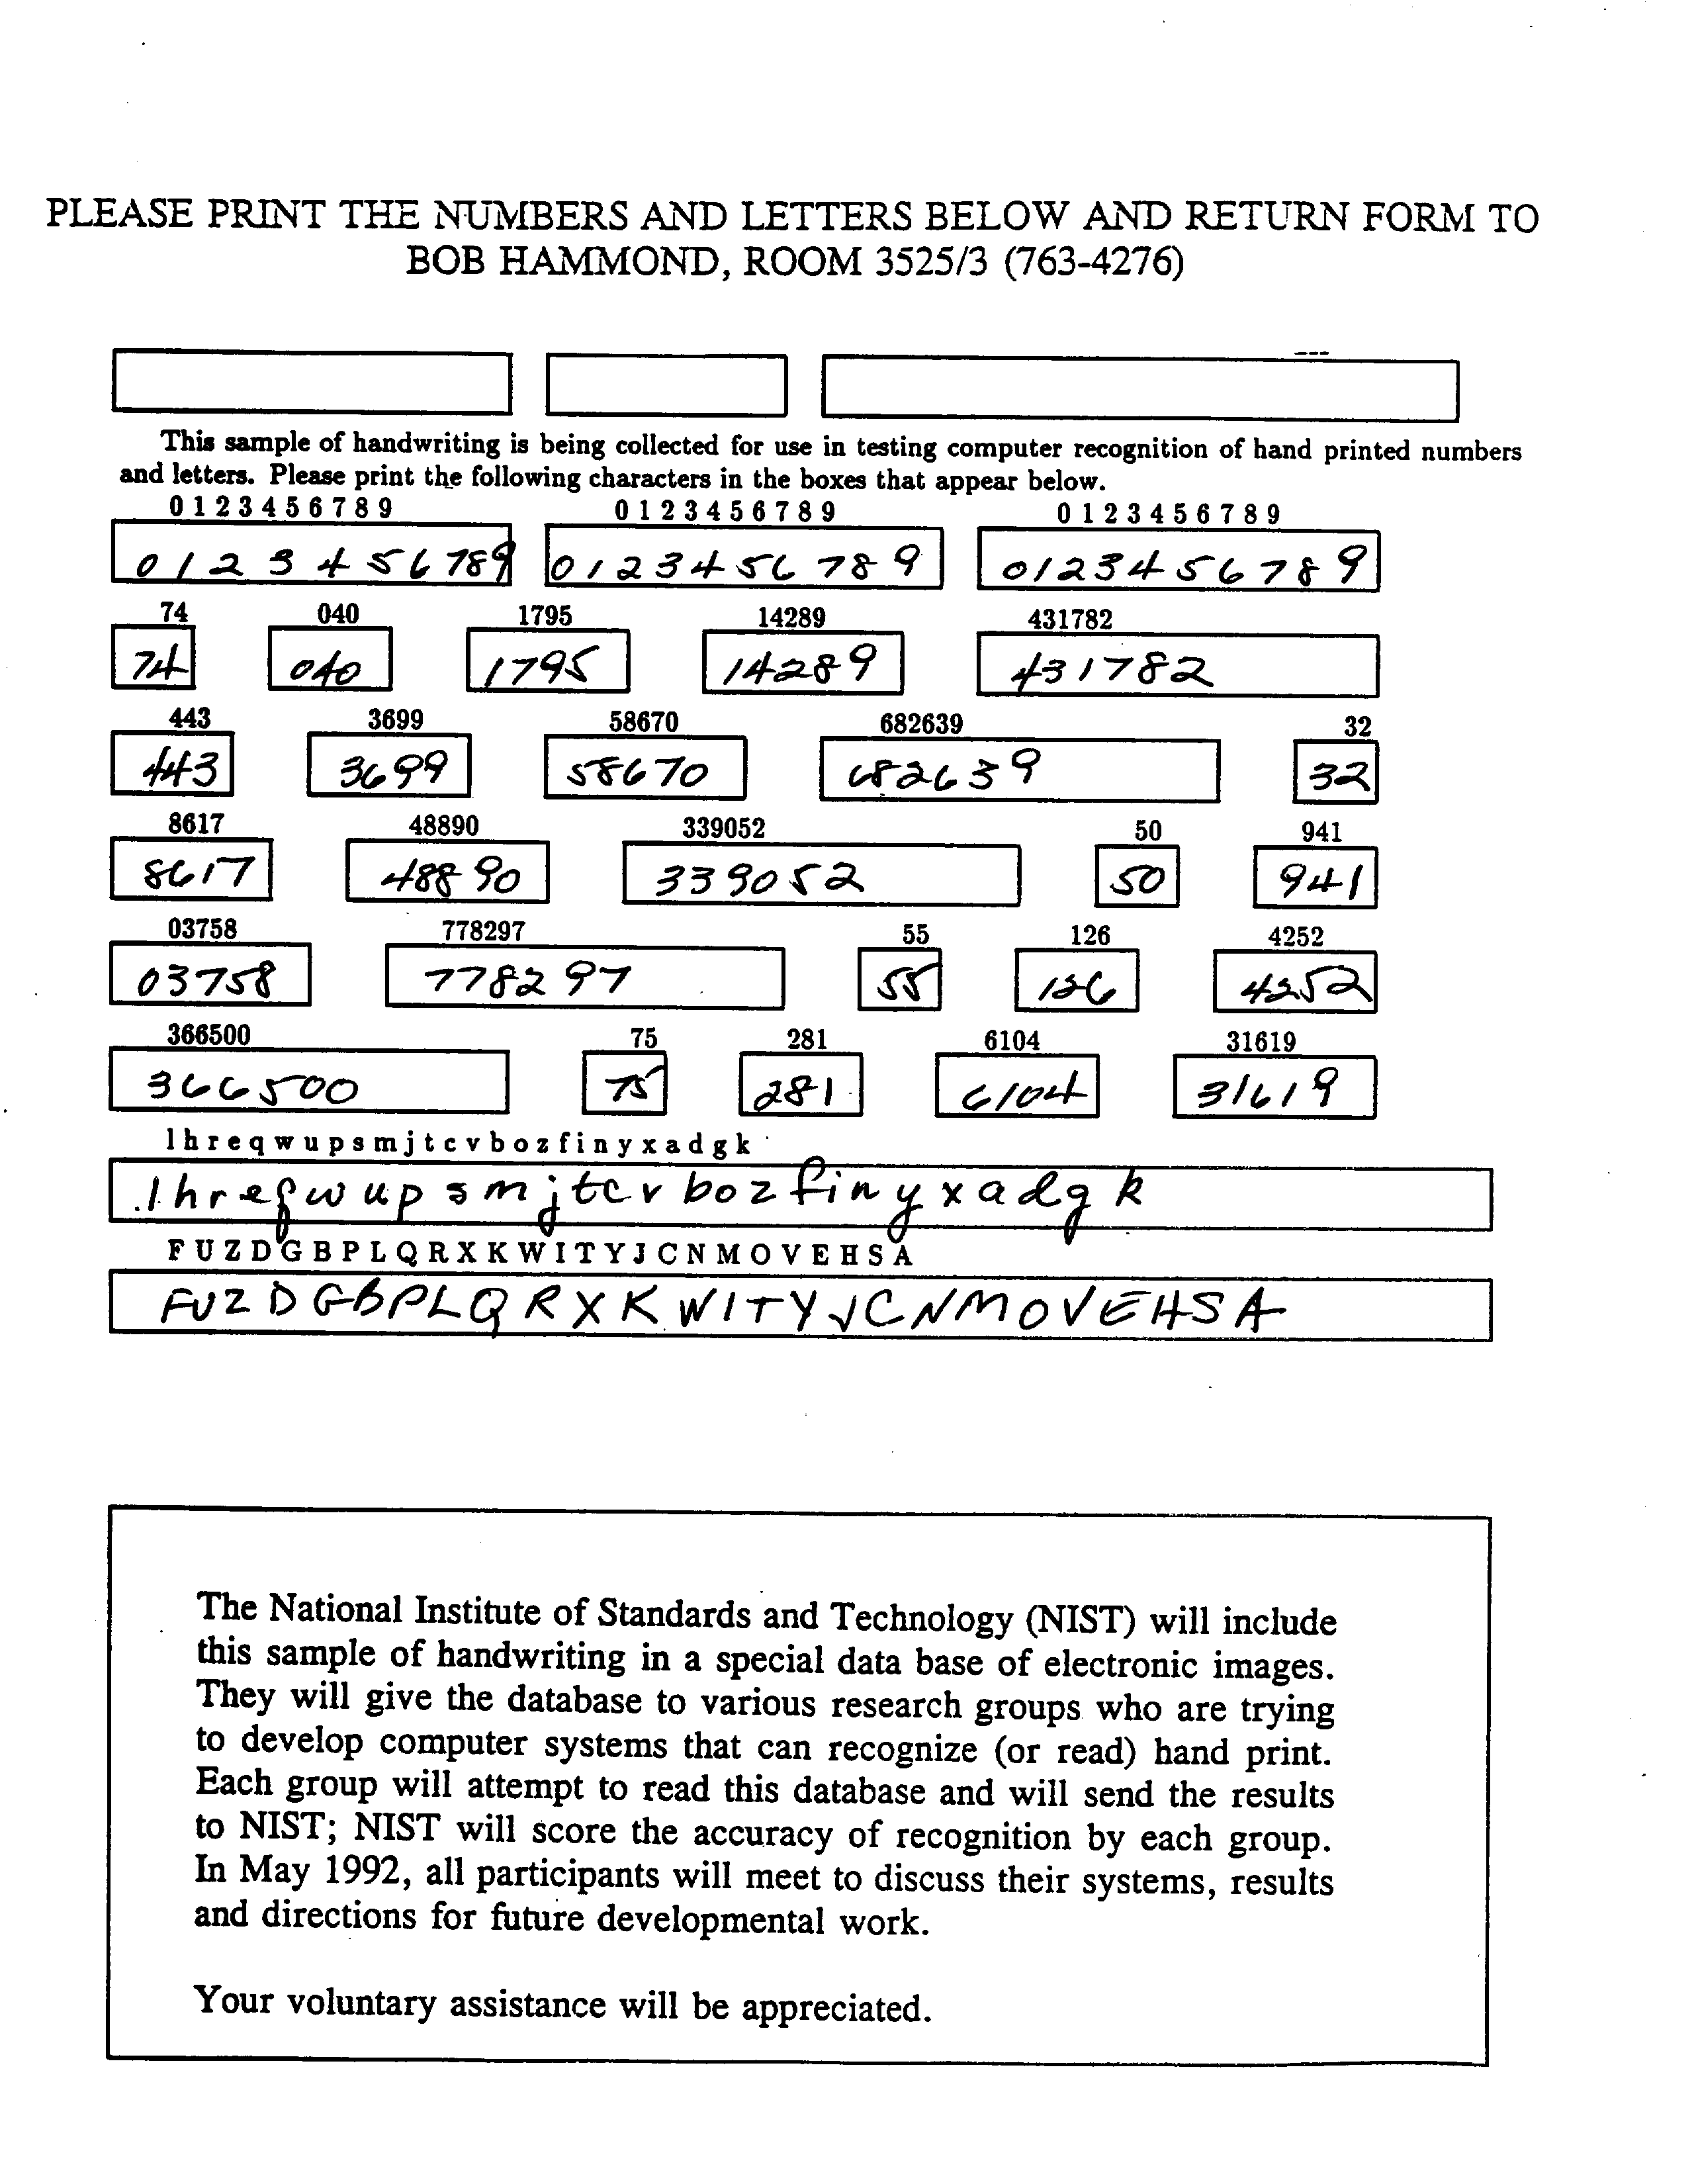 PLEASE PRINT THE NUMBERS AND LETTERS BELOW AND RETURN FORM TO
BOB HAMMOND, ROOM 3525/3 (763-4276)
This sample of handwriting is being collected for use in testing computer recognition of hand printed numbers
and letters. Please print the following characters in the boxes that appear below.
0 1 2 3 4 5 6 7 8 9 0 1 2 3 4 5 6 7 8 9 0 1 2 3 4 5 6 7 8 9
0 1 2 3 4 5 6 7 8 9 0 1 2 3 4 5 6 7 8 9 0 1 2 3 4 5 6 7 8 9
74 040 1795 14289 431782
74 040 1795 14289 431782
443 3699 58670 682639 32
443 3699 58670 682639 32
8617 48890 339052 50 941
8617 48890 339052 50 941
03758 778297 55 126 4252
03758 778297 55 126 4252
366500 75 281 6104 31619
366500 75 281 6104 31619
l h r e q w u p s m j t c v b o z f i n y x a d g k
l h r e q w u p s m j t c v b o z f i n y x a d g k
F U Z D G B P L Q R X K W I T Y J C N M O V E H S A
F U Z D G B P L Q R X K W I T Y J C N M O V E H S A
The National Institute of Standards and Technology (NIST) will include
this sample of handwriting in a special data base of electronic images.
They will give the database to various research groups who are trying
to develop computer systems that can recognize (or read) hand print.
Each group will attempt to read this database and will send the results
to NIST; NIST will score the accuracy of recognition by each group.
In May 1992, all participants will meet to discuss their systems, results
and directions for future developmental work.
Your voluntary assistance will be appreciated.